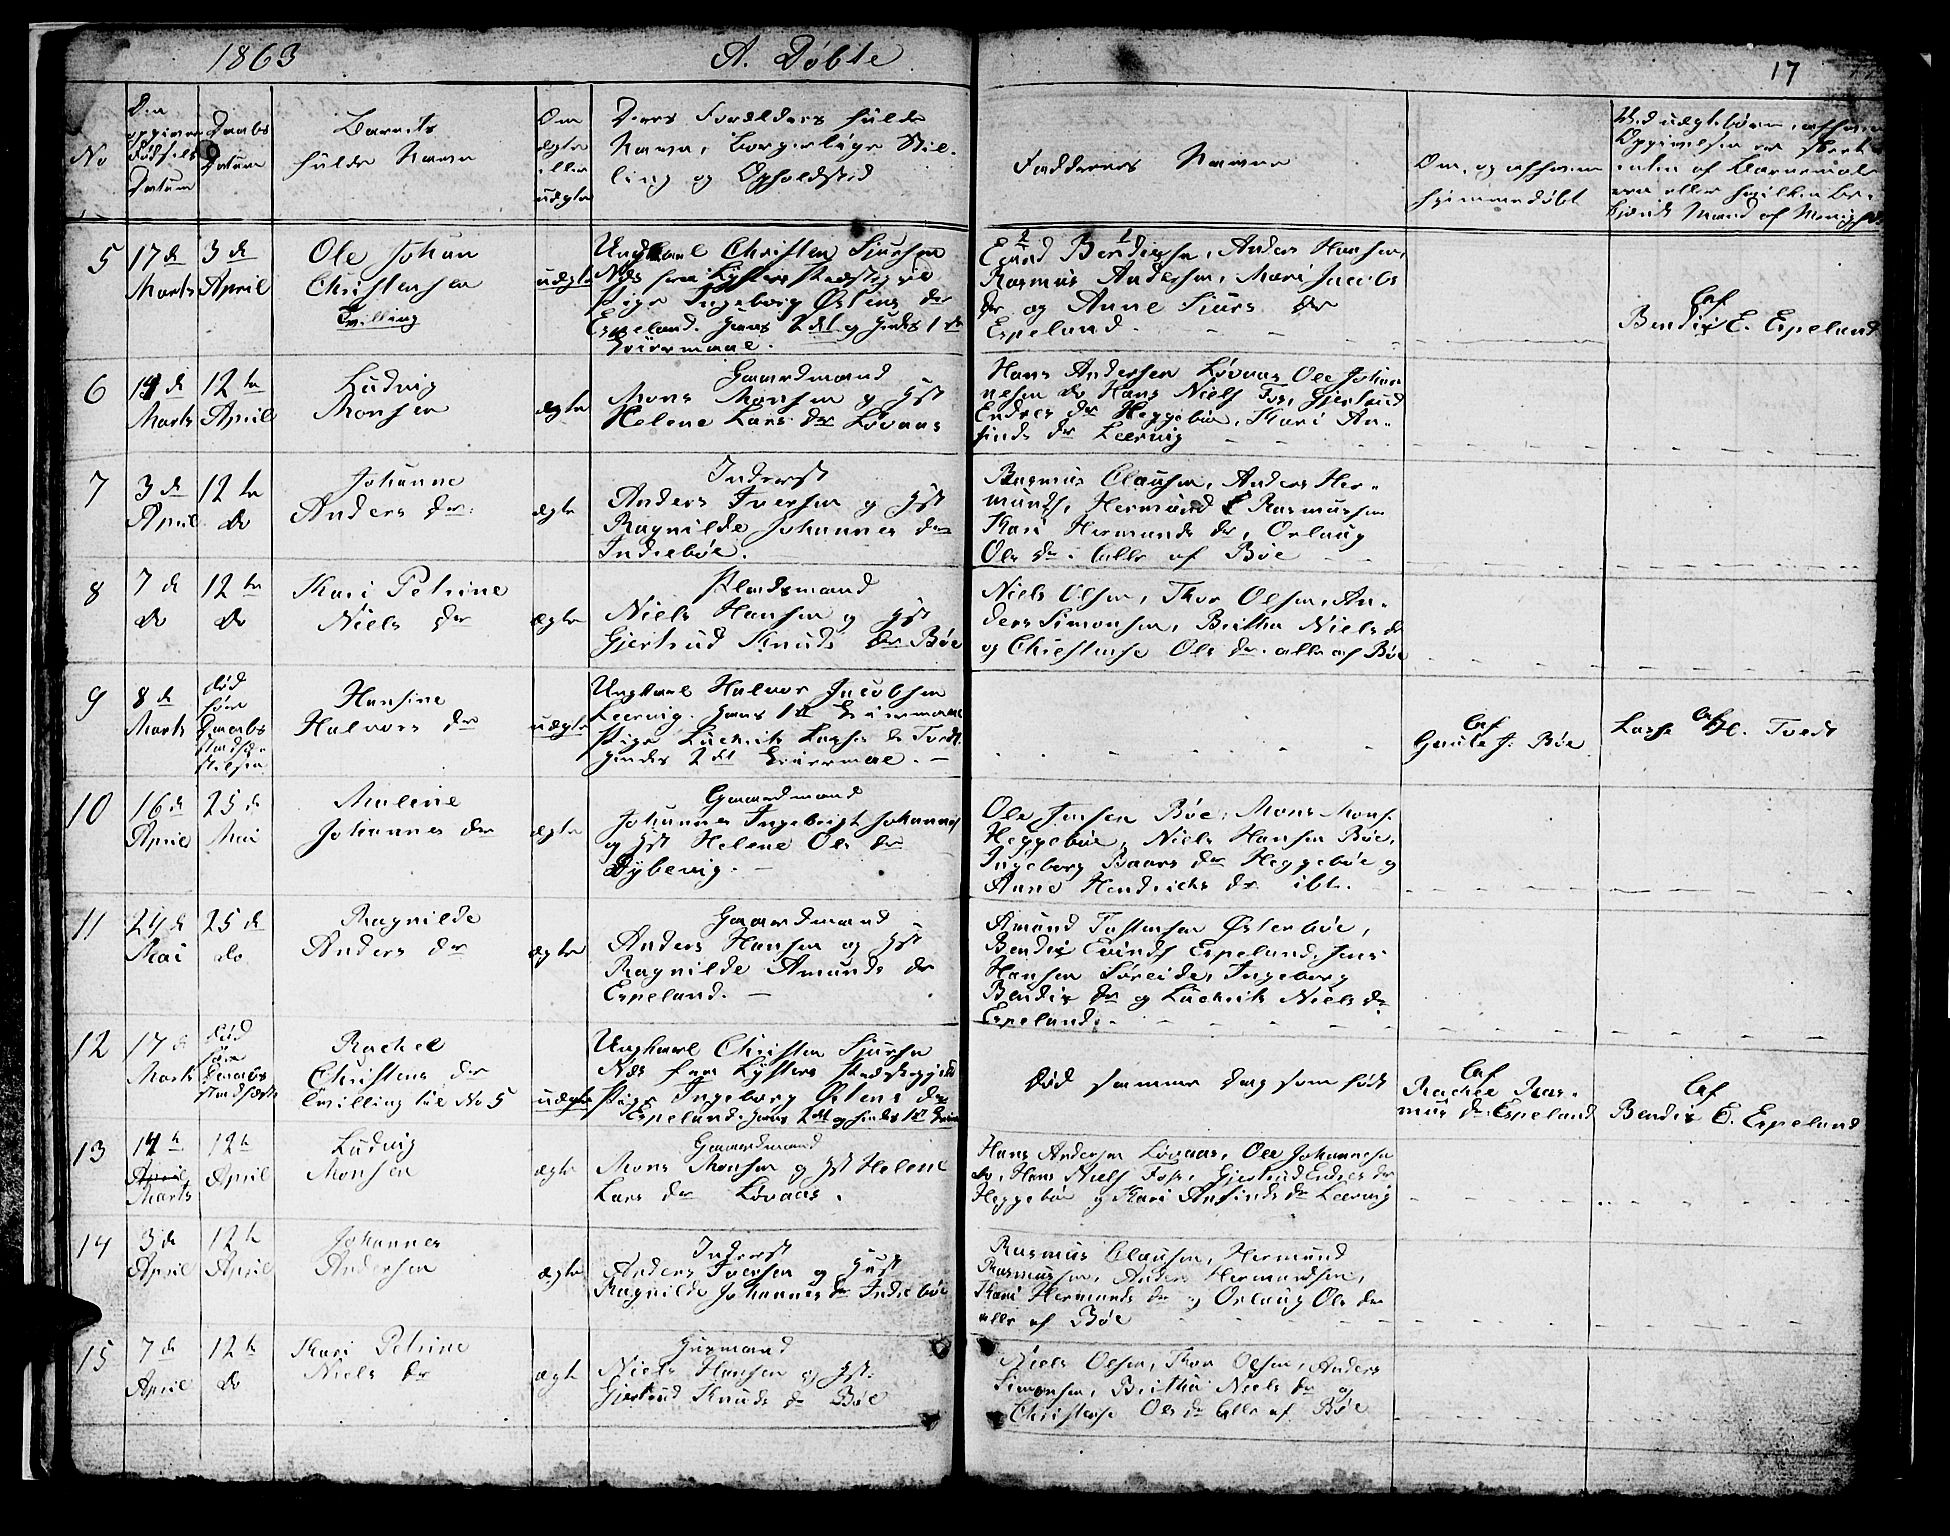 1863
A. Døbte
17
No
Den opgivne Fødsels Datum
Daabs Datum
Barnets fulde Navn
Om ægte eller uægte
Deres Forældres fulde
Navn, Borgerlige Stil-
ling og Opholdsted
Faddernes Navne
Om, og af hvem
hjemmedøbt
Ved uægte børn, af hvem
5
17 de Marts
3 de April
Ole Johan
Christensen
Tvilling
uægte
Ungkarl Christen Sjursen
Næs fra Lysters Præstegjeld
Pige Ingeborg Østens dr
Espeland. Hans 2det og Hendes 1ste
Leiermaal.
Eivind Bendixsen, Anders Hansen,
Rasmus Andersen, Mari Jacobs
dr og Anne Sjurs dr
Espeland.
af
Bendix E. Espeland
6
14 de Marts
12 te April
Ludvig
Monsen
ægte
Gaardmand
Mons Monsen og Hst
Helene Lars dr Løvaas
Hans Andersen Løvaas, Ole Johan-
nesen do, Hans Niels Fos, Gjertrud
Endres dr Heggebøe, Kari An-
finds dr Leervig
7
3 de April
12 te do
Johanne
Anders dr
ægte
Inderst
Anders Iversen og Hst
Ragnilde Johannes dr
Indrebøe.
Rasmus Clausen, Anders Her-
munds, Hermund Rasmussen
Kari Hermunds dr, Orlaug
Ols dr alle af Bøe
8
7 de do
12 te do
Kari Petrine
Niels dr
ægte
Pladsmand
Niels Hansen og Hst
Gjertrud Knuds dr Bøe
Niels Olsen, Thor Olsen, An-
ders Simonsen, Britha Niels dr
og Christense Ols dr alle af Bøe
9
8 de Marts
død før Daabs stadfæstelsen
Hansine
Halvors dr
uægte
Ungkarl Halvor Jacobsen
Leervig. Hans 1ste Leiermaal
Pige Lasses dr Tvedt
Hendes 2det Leiermaal.
af
Gaute J. Bøe
af
Lasse H. Tvedt
10
16 de April
25 de Mai
Malene
Johannes dr
ægte
Gaardmand
Johannes Ingebrigt Johannes
og Hst Helene Ols dr
Dybevig.
Ole Jensen Bøe, Mons Mons.
Heggebøe, Niels Hansen Bøe,
Ingeborg Baars dr Heggebøe og
Anne Hendriks dr ibd.
11
24 de Mai
25 de do
Ragnilde
Anders dr
ægte
Gaardmand
Anders Hansen og Hst
Ragnilde Amunds dr
Espeland.
Amund Tostensen Østerbøe,
Bendix Evinds Espeland, Jens
Hansen Søreide, Ingeborg
Bendix dr og Niels dr
Espeland.
12
17 de Marts
død før Daabs stadfæst
Rachel
Christens dr
Tvilling til No 5
uægte
Ungkarl Christen Sjursen
Næs fra Lysters Præstegjeld
Pige Ingeborg Østens dr
Espeland. Hans 2det og Hendes 1ste Leierm
Død samme Dag som født
af
Rachel Ras-
mus dr Espeland
af
Bendix E. Espeland
13
14 de
April
Marts
12 te April
Ludvig
Monsen
ægte
Gaardmand
Mons Monsen og Hst Helene
Lars dr Løvaas.
Hans Andersen Løvaas, Ole Johannesen
do, Hans Niels Fos, Gjertrud Endres dr
Heggebøe og Kari Anfinds dr Leervig
14
3 de April
12 te April
Johannes
Andersen
ægte
Inderst
Anders Iversen og Hust
Ragnilde Johannes dr Indrebøe
Rasmus Clausen, Hermund
Rasmussen, Anders Hermundsen,
Kari Hermunds dr og Orlaug Ols dr
alle af Bøe
15
7 de April
12 te do
Kari Petrine
Niels dr
ægte
Huusmand
Niels Hansen og Hst.
Gjertrud Knuds dr Bøe
Niels Olsen, Thor Olsen, Anders
Simonsen, Britha Niels dr og
Christense Ols dr alle af Bøe